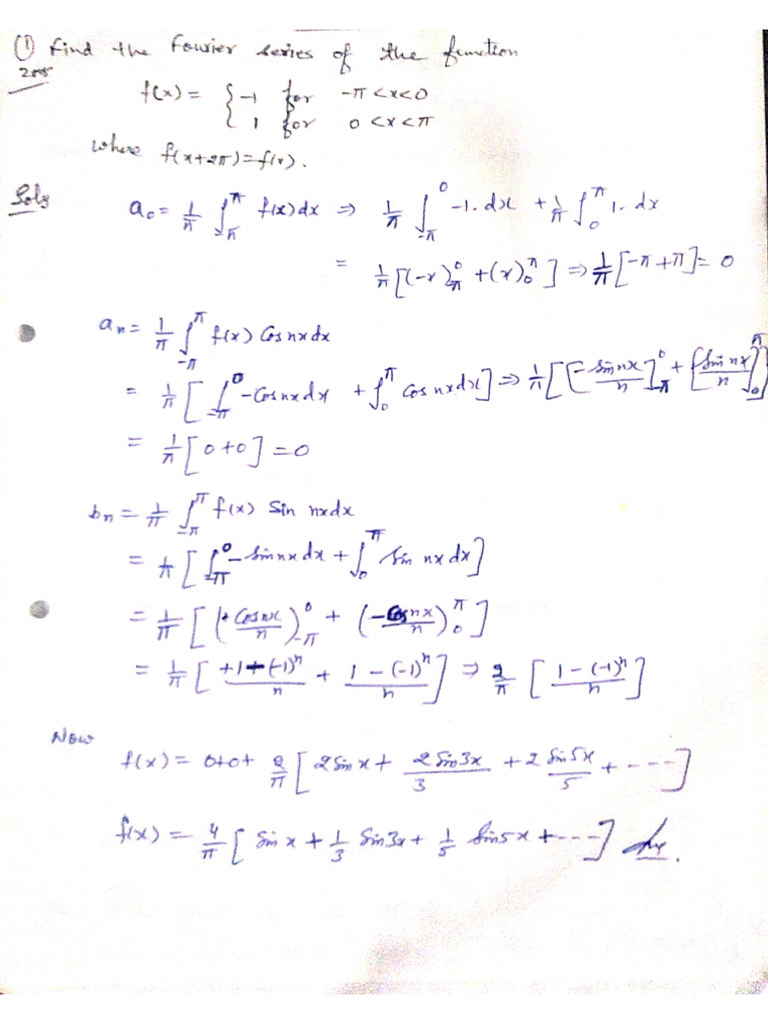 ① Find the Fourier series of the function
f(x) = { -1 for -π < x < 0
1 for 0 < x < π
where f(x+2π) = f(x).
Soln
a₀ = 1/π ∫_{-π}^{π} f(x) dx ⇒ 1/π ∫_{-π}^{0} -1. dx + 1/π ∫_{0}^{π} 1. dx
= 1/π [(-x)_{π}^{0} + (x)_{0}^{π}] ⇒ 1/π [-π + π] = 0
aₙ = 1/π ∫_{-π}^{π} f(x) Cos nx dx
= 1/π [∫_{-π}^{0} -Cos nx dx + ∫_{0}^{π} Cos nx dx] ⇒ 1/π [[-sin nx/n]_{-π}^{0} + [sin nx/n]_{0}^{π}]
= 1/π [0+0] = 0
bₙ = 1/π ∫_{-π}^{π} f(x) Sin nx dx
= 1/π [∫_{-π}^{0} -sin nx dx + ∫_{0}^{π} sin nx dx]
= 1/π [(+Cos nx/n)_{-π}^{0} + (-Cos nx/n)_{0}^{π}]
= 1/π [+1-(-1)ⁿ/n + 1-(-1)ⁿ/n] ⇒ 2/π [1-(-1)ⁿ/n]
Now
f(x) = 0+0+ 2/π [2 Sin x + 2 Sin 3x/3 + 2 Sin 5x/5 + ----]
f(x) = 4/π [Sin x + 1/3 Sin 3x + 1/5 Sin 5x + ----]